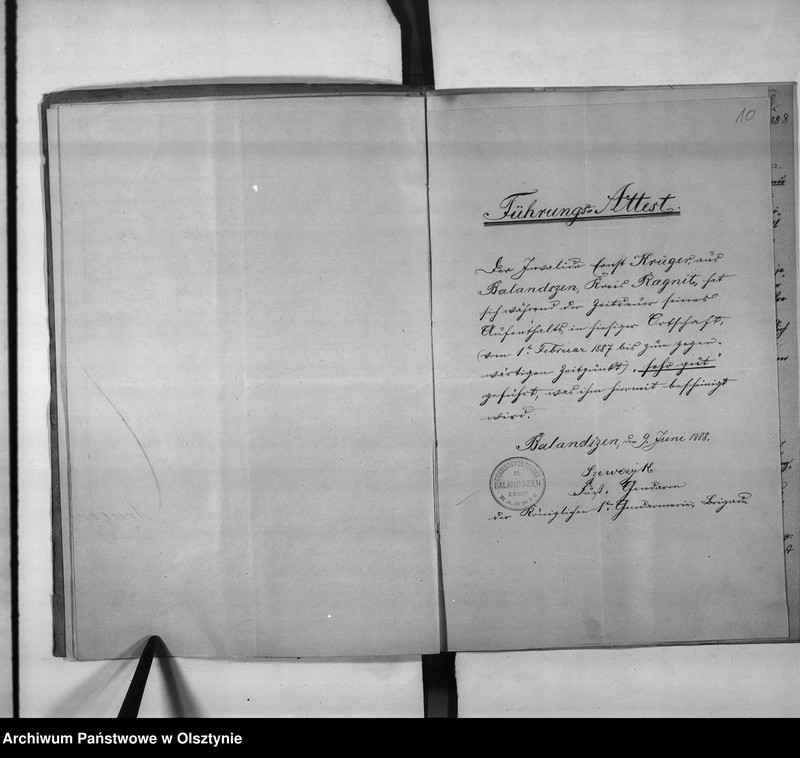 10
Führungs-Attest.
Der Invalide Ernst Krüger, aus
Balandszen, Kreis Ragnit, hat
sich während der Zeitdauer seines
Aufenthalts, in hiesiger Ortschaft,
(vom 1ten Februar 1887 bis zum gegen-
wärtigen Zeitpunkt) "sehr gut"
geführt, was ihm hiermit bescheinigt
wird.
Balandszen, d. 9. Juni 1888.
Szewczyk
Fuß. Gendarm
der Königlichen 1ten Gendarmerie, Brigade
BALANDSZEN
KREIS
RAGNIT
Archiwum Państwowe w Olsztynie